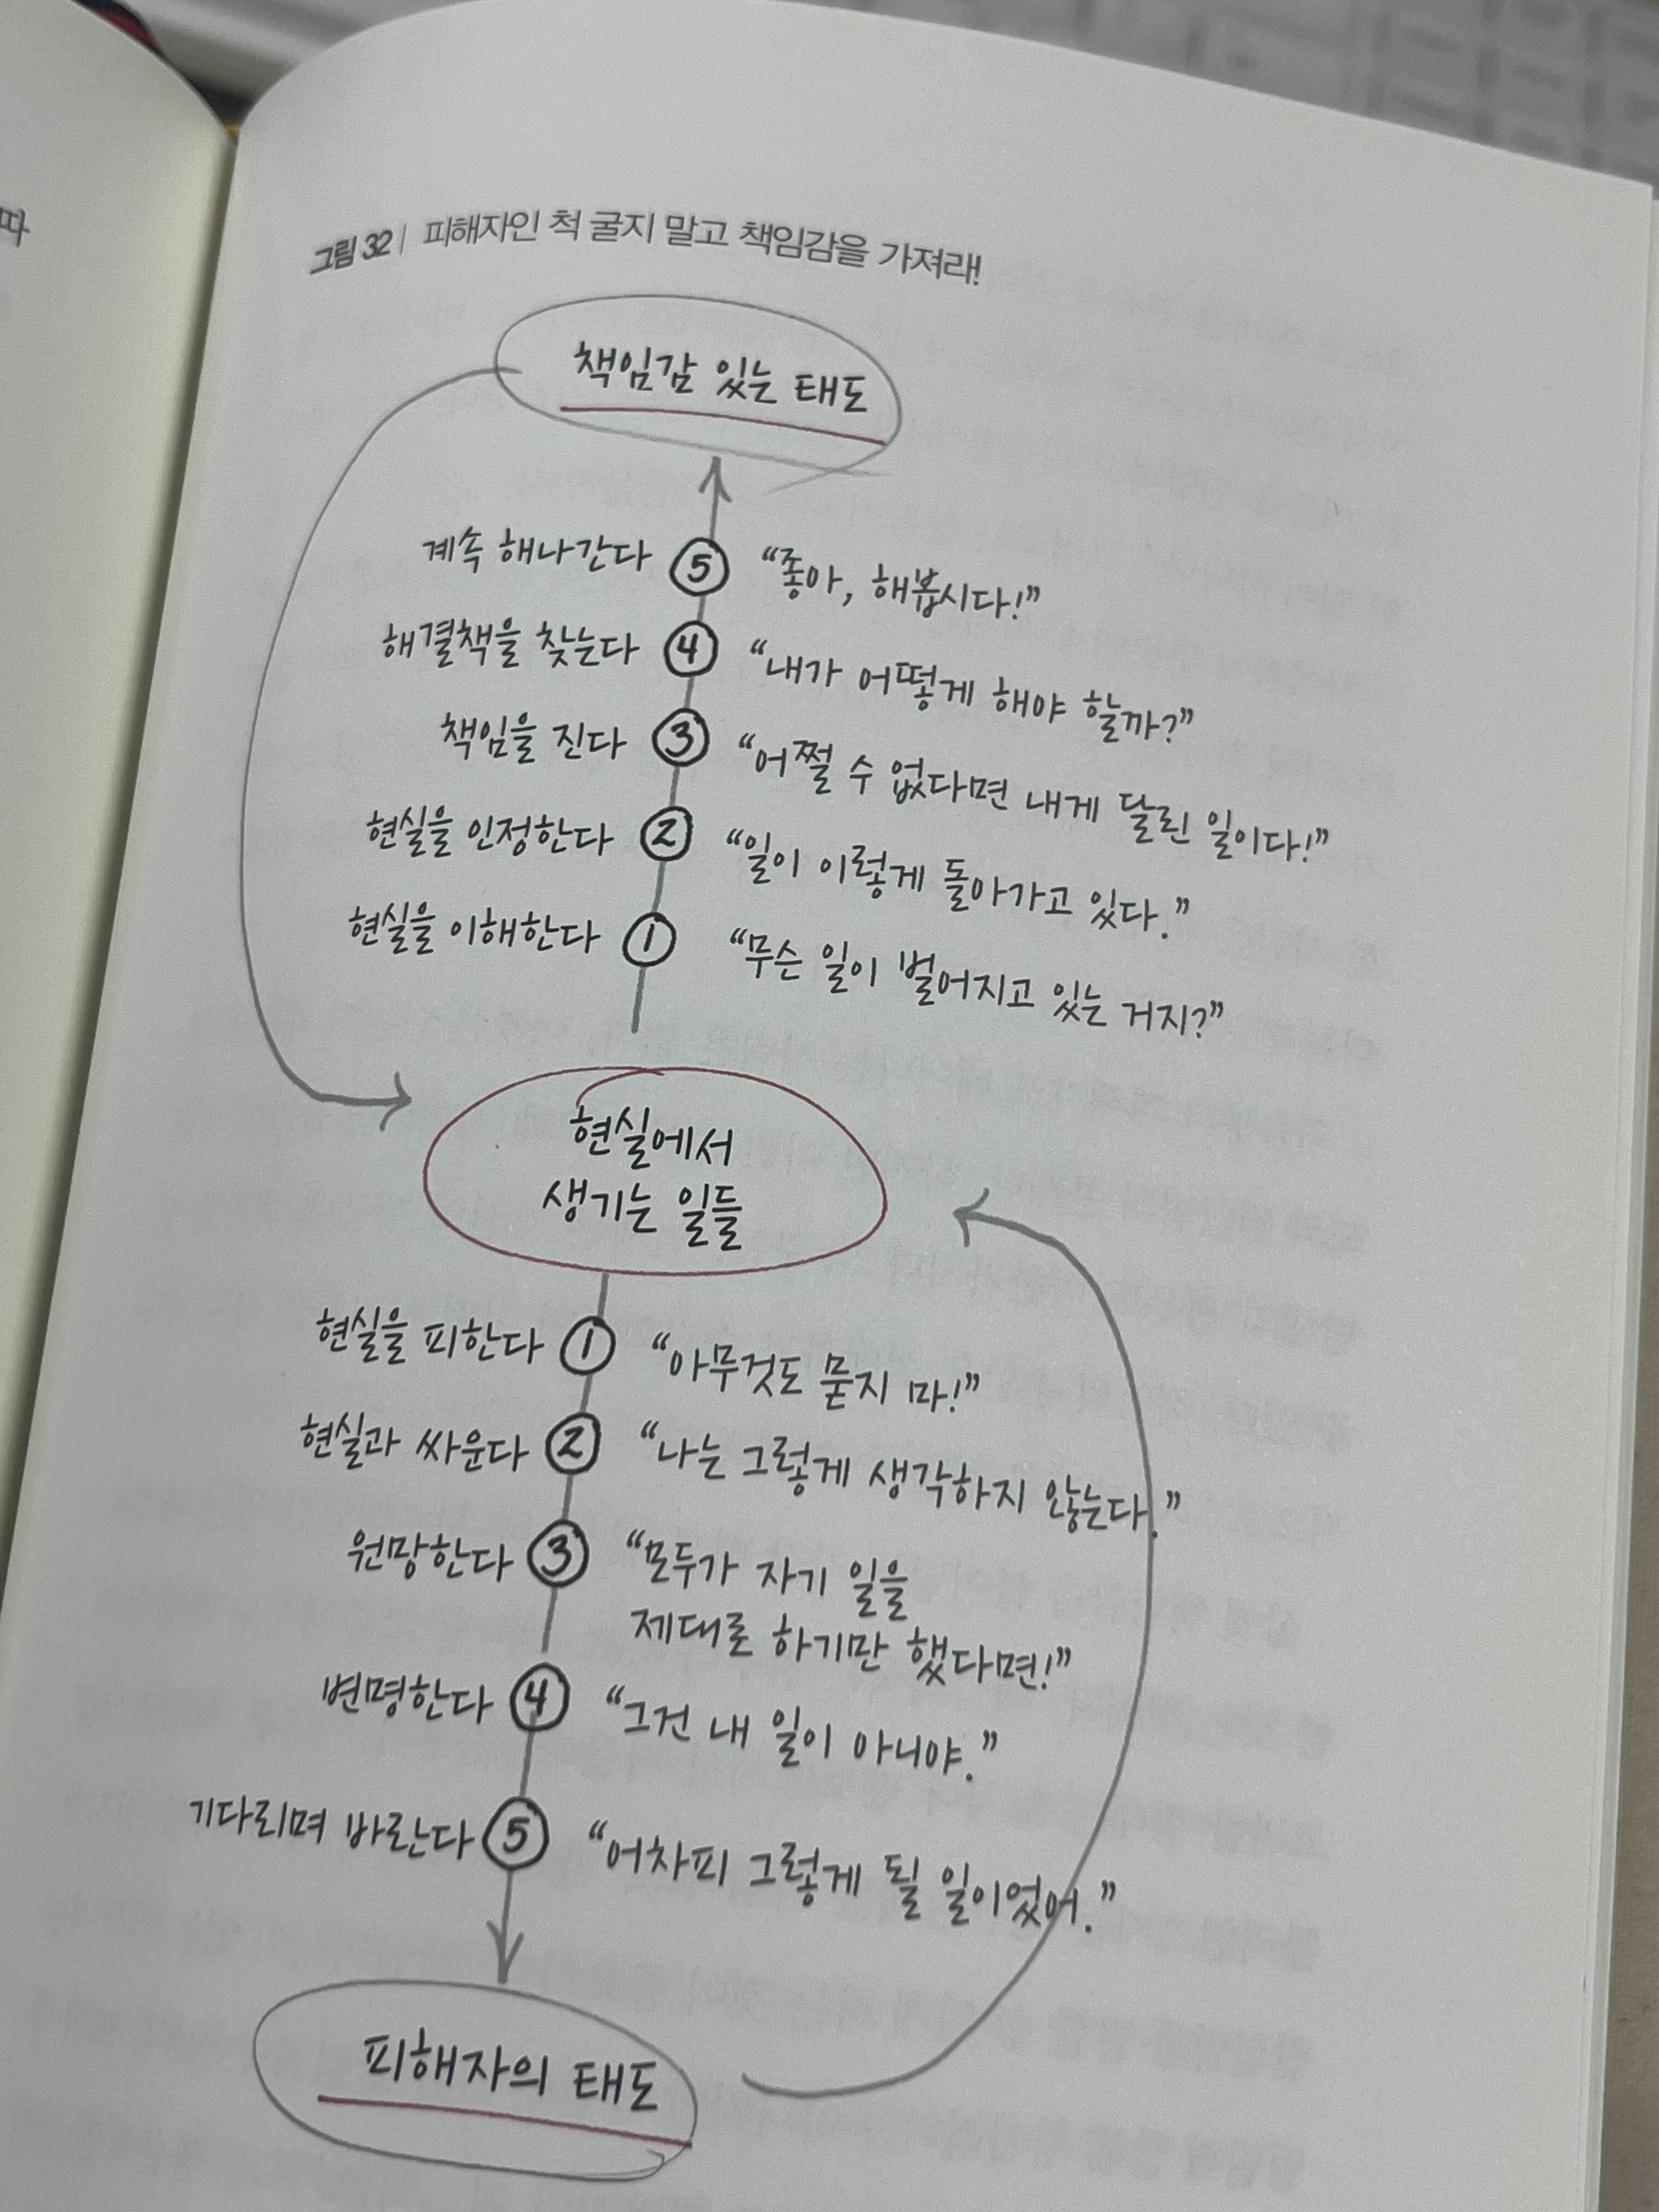 따
그림 32 | 피해자인 척 굴지 말고 책임감을 가져라!
책임감 있는 태도
계속 해나간다 ⑤ “좋아, 해봅시다!”
해결책을 찾는다 ④ “내가 어떻게 해야 할까?”
책임을 진다 ③ “어쩔 수 없다면 내게 달린 일이다!”
현실을 인정한다 ② “일이 이렇게 돌아가고 있다.”
현실을 이해한다 ① “무슨 일이 벌어지고 있는 거지?”
현실에서
생기는 일들
현실을 피한다 ① “아무것도 묻지 마!”
현실과 싸운다 ② “나는 그렇게 생각하지 않는다.”
원망한다 ③ “모두가 자기 일을
제대로 하기만 했다면!”
변명한다 ④ “그건 내 일이 아니야.”
기다리며 바란다 ⑤ “어차피 그렇게 될 일이었어.”
피해자의 태도